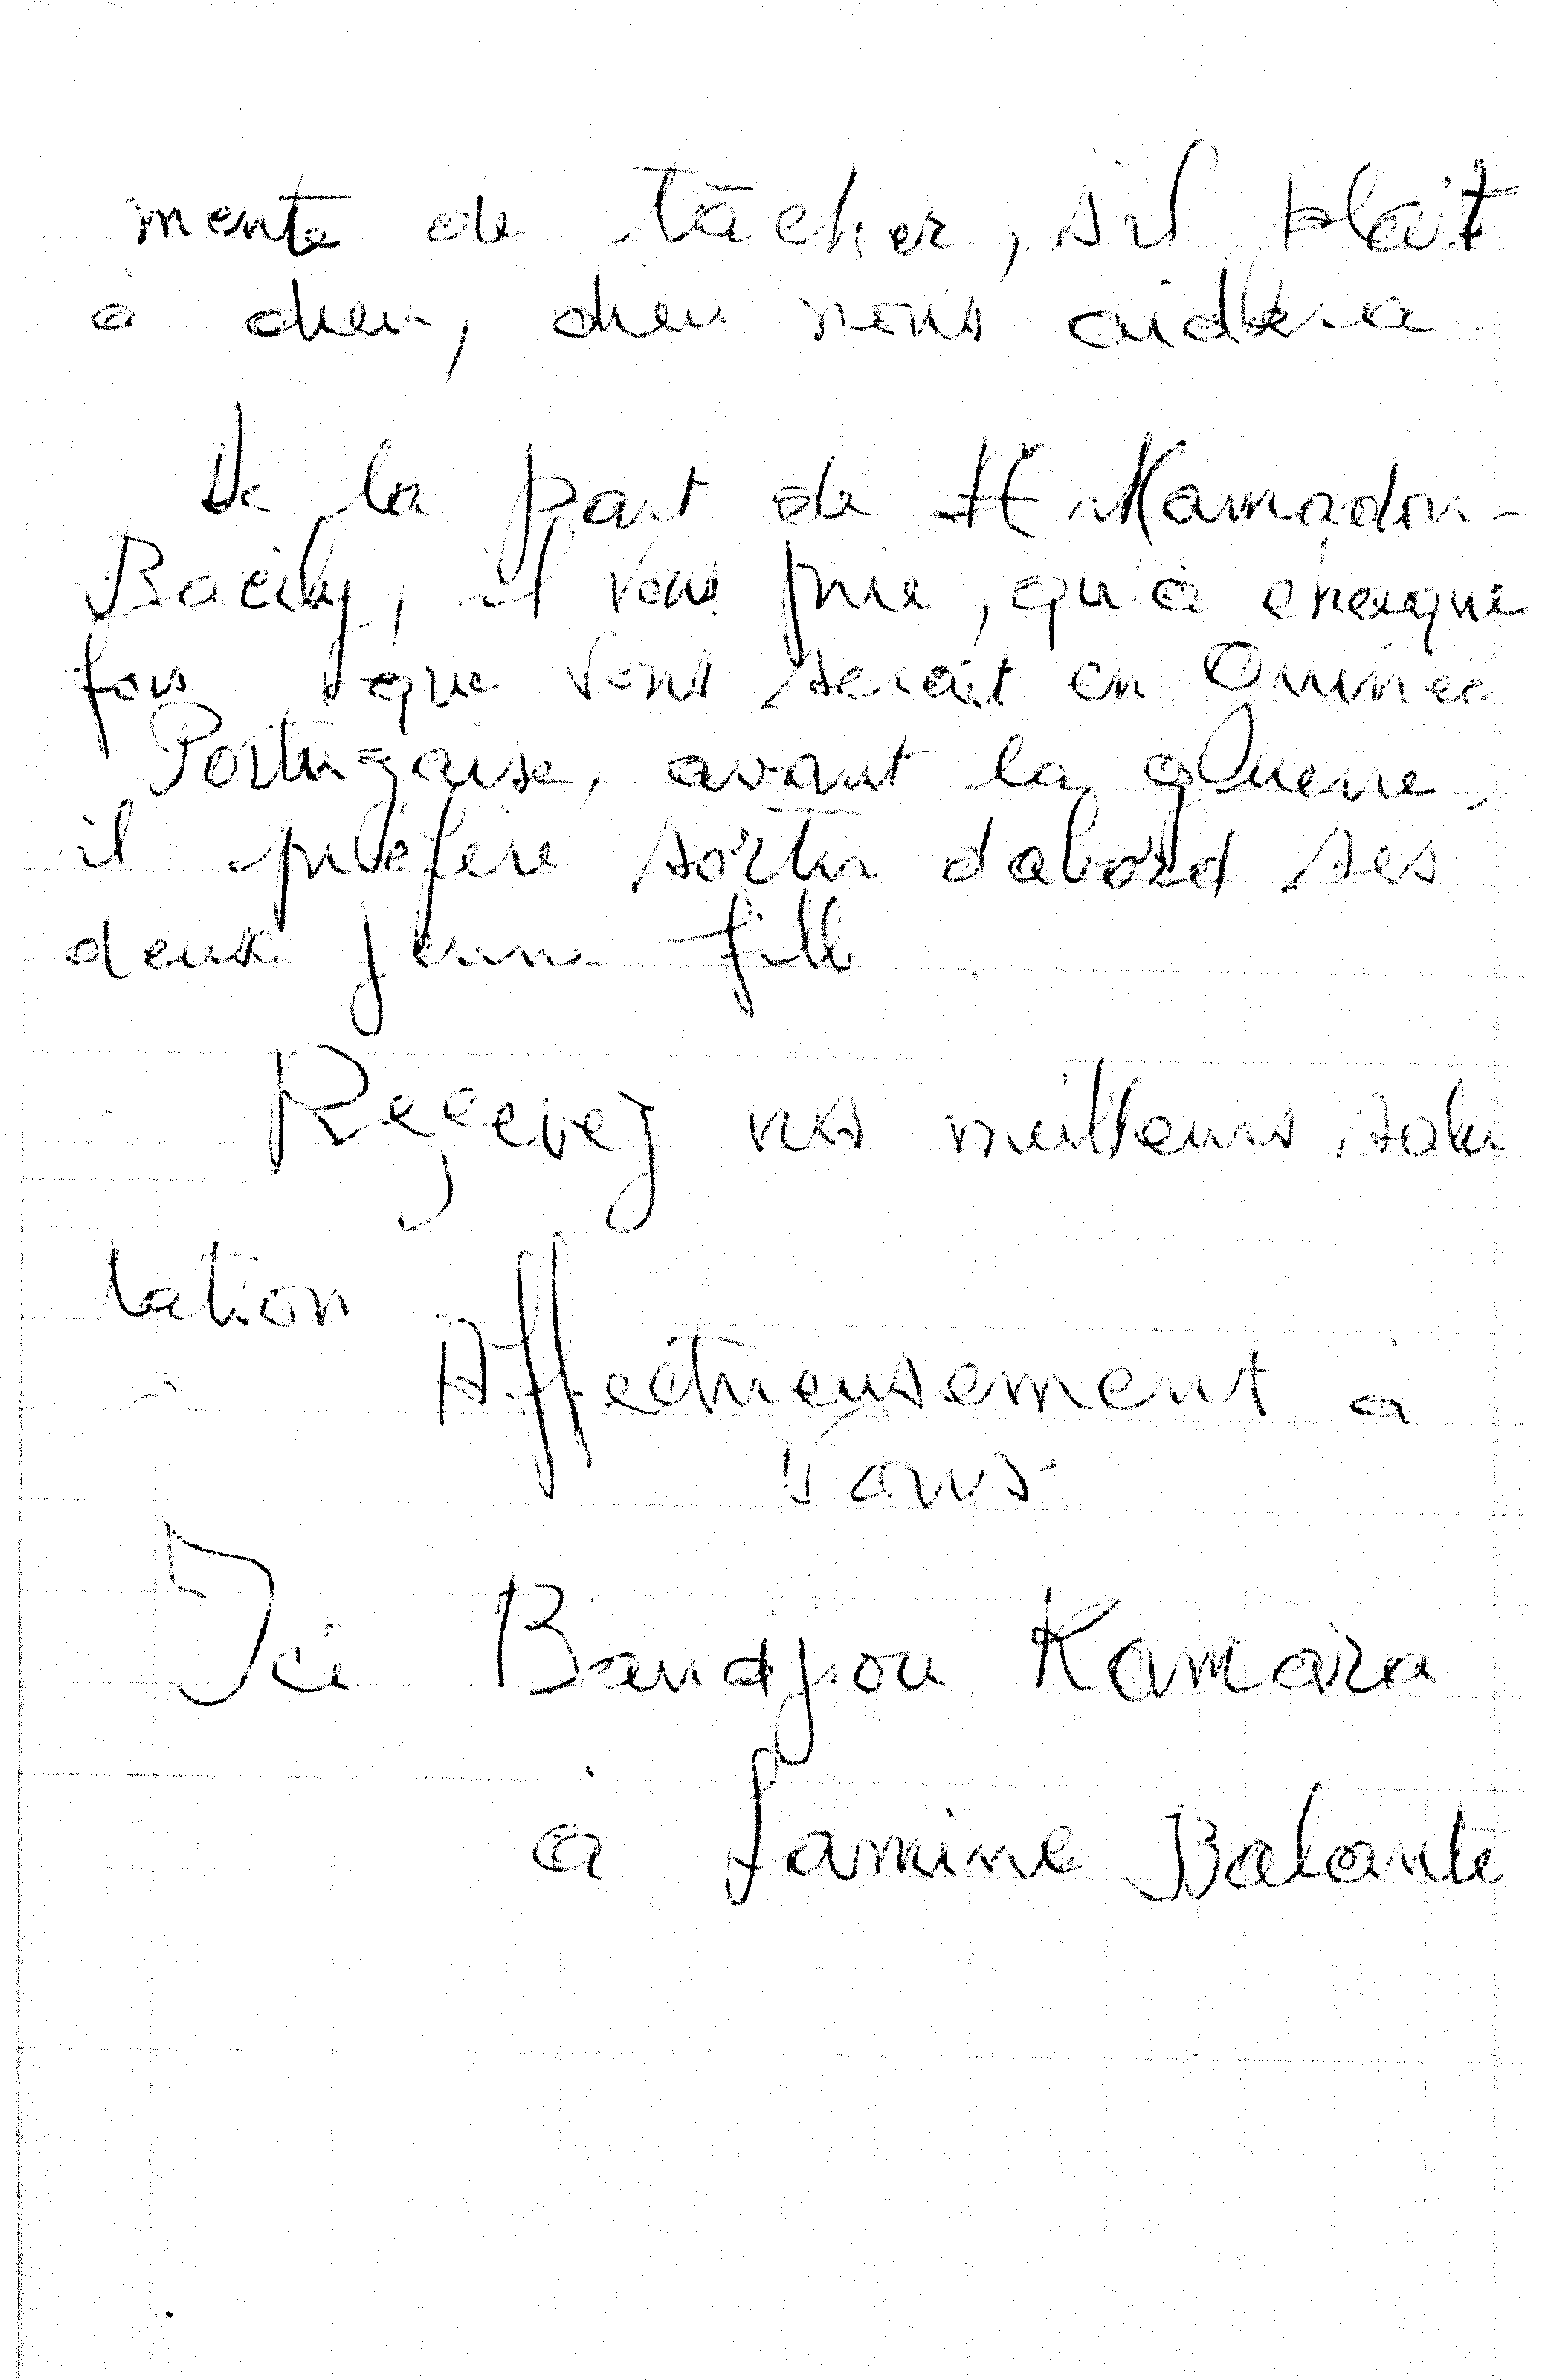 mente de tâcher, s'il plait
à dieu, dieu nous aidera
De la part de H Mamadou
Bacily, il vous prie, qu'à chaque
fois que vous serait en Guinée
Portugaise, avant la guerre,
il préfère sortir dabord ses
deux jeune fille
Reçevez nos meilleurs salu
tation
Affectieusement à
vous
Ici Bandjou Kamara
à Lamine Balante